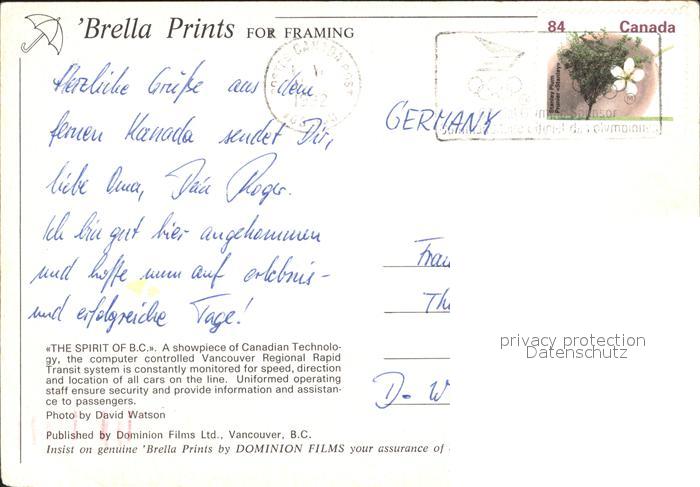 'Brella Prints FOR FRAMING
84 Canada
Stanley Plum
Prunier «Stanley»
1992
Herzliche Grüße aus dem
fernen Kanada sendet Dir,
liebe Oma, Dein Roger.
Ich bin gut hier angekommen
und hoffe nun auf erlebnis-
und erfolgreiche Tage!
GERMANY
Frau
Th
D- W
«THE SPIRIT OF B.C.». A showpiece of Canadian Technolo-
gy, the computer controlled Vancouver Regional Rapid
Transit system is constantly monitored for speed, direction
and location of all cars on the line. Uniformed operating
staff ensure security and provide information and assistan-
ce to passengers.
Photo by David Watson
Published by Dominion Films Ltd., Vancouver, B.C.
Insist on genuine 'Brella Prints by DOMINION FILMS your assurance of
privacy protection
Datenschutz